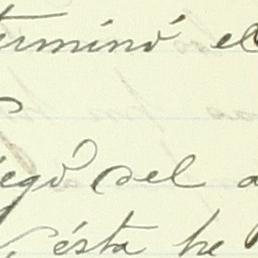 terminó el
egó del a
ésta he